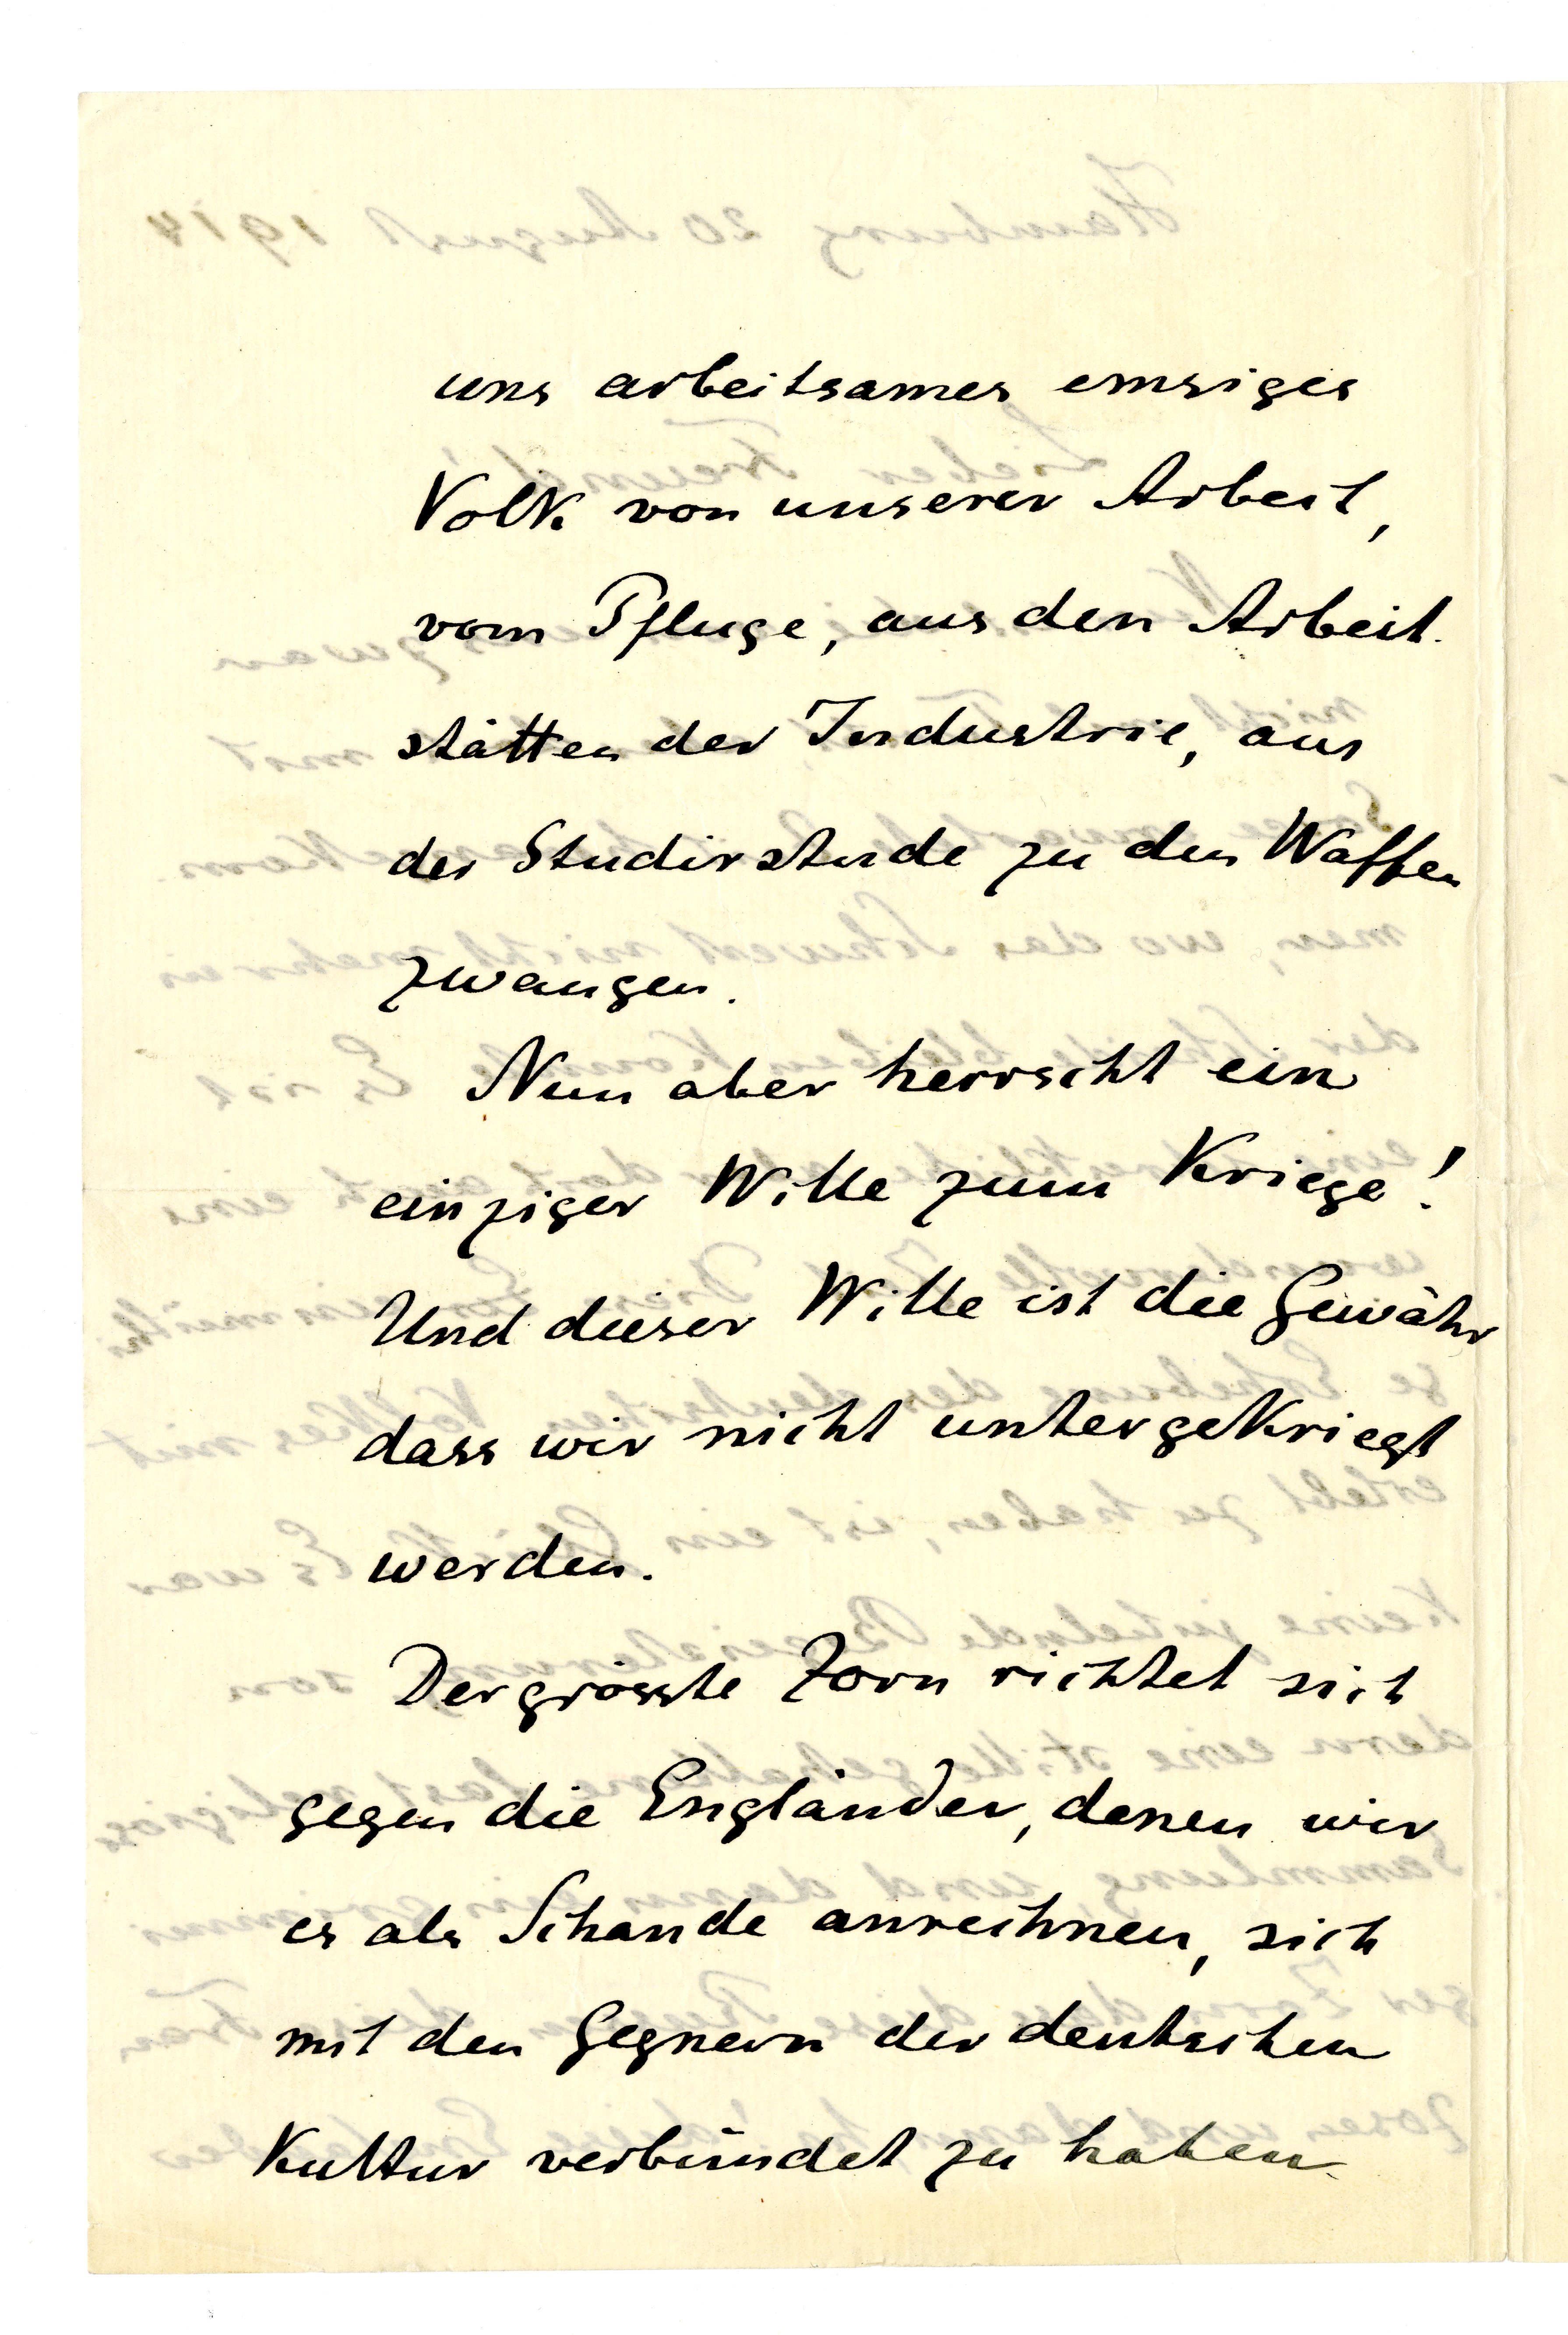 uns arbeitsames emsiges
Volk von unserer Arbeit,
vom Pfluge, aus den Arbeit-
stätten der Industrie, aus
der Studirstude zu den Waffen
zwangen.
Nun aber herrscht ein
einziger Wille zum Kriege!
Und dieser Wille ist die Gewähr
dass wir nicht untergekriegt
werden.
Der grösste Zorn richtet sich
gegen die Engländer, denen wir
es als Schande anrechnen, sich
mit den Gegnern der deutschen
Kultur verbündet zu haben.